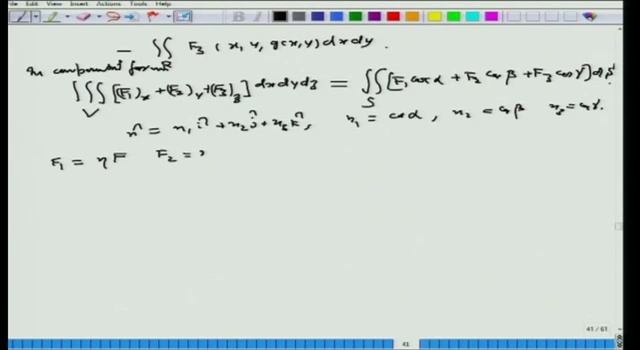 File Edit View Insert Actions Tools Help
- ∬_R F₃ (x, y, g(x,y)) dx dy.
In component form
∭_V [(F₁)ₓ + (F₂)ᵧ + (F₃)_z] dx dy dz = ∬_S [F₁ cos α + F₂ cos β + F₃ cos γ] ds
n̂ = n₁ î + n₂ ĵ + n₃ k̂, n₁ = cos α, n₂ = cos β n₃ = cos γ.
F₁ = η F F₂ =
41 / 61
41